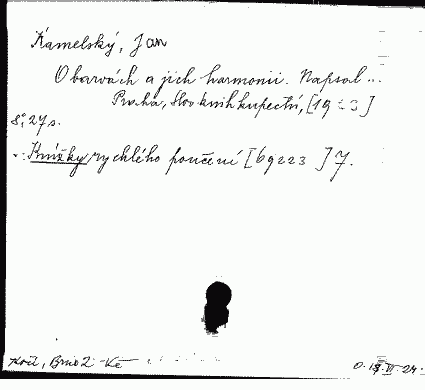 Kamelský, Jan
O barvách a jich harmonii. Napsal...
Praha, Slov. knihkupectví, [19 3]
8°, 27 s.
Knížky rychlého poučení [69223] 7.
Brno 2
24.